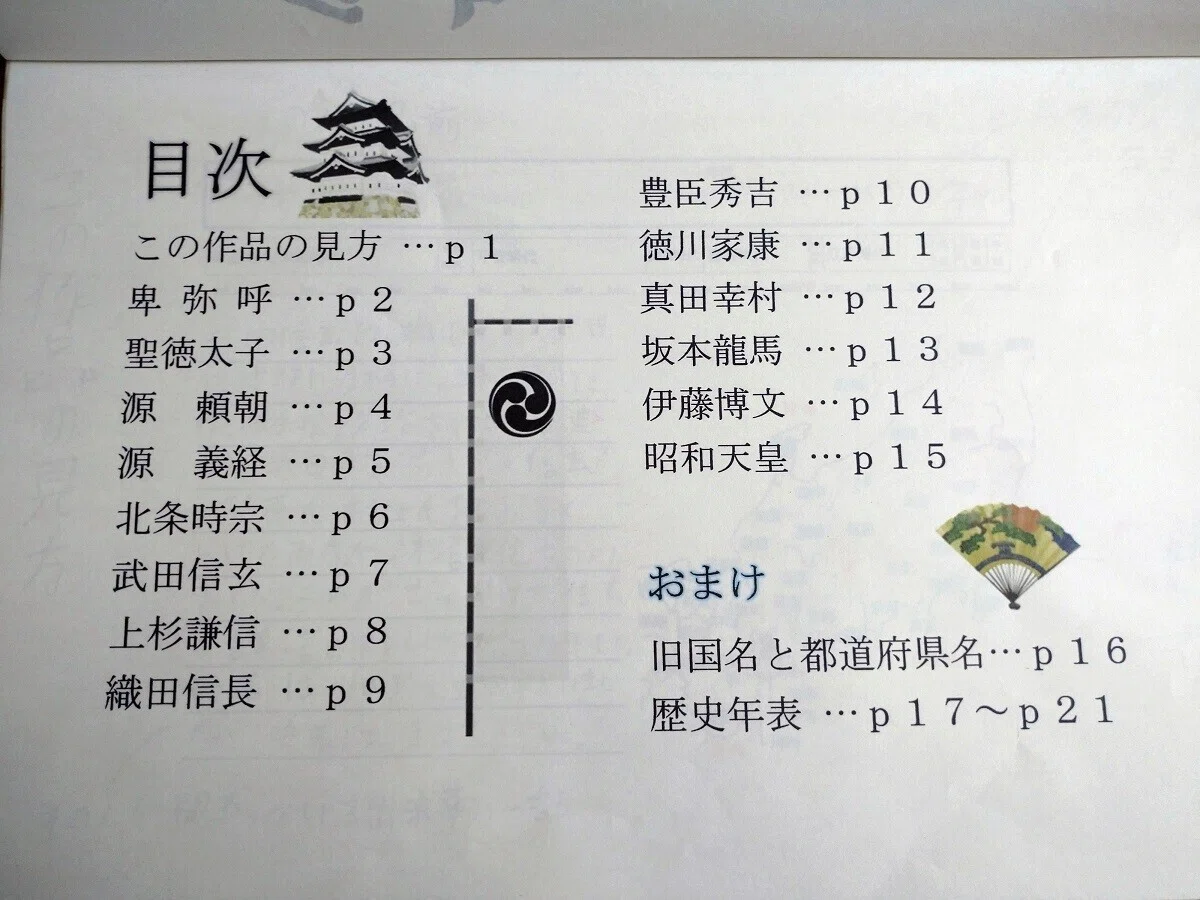 目次
この作品の見方 …p１
卑 弥 呼 …p２
聖徳太子 …p３
源　頼朝 …p４
源　義経 …p５
北条時宗 …p６
武田信玄 …p７
上杉謙信 …p８
織田信長 …p９
豊臣秀吉 …p１０
徳川家康 …p１１
真田幸村 …p１２
坂本龍馬 …p１３
伊藤博文 …p１４
昭和天皇 …p１５
おまけ
旧国名と都道府県名…p１６
歴史年表 …p１７～p２１